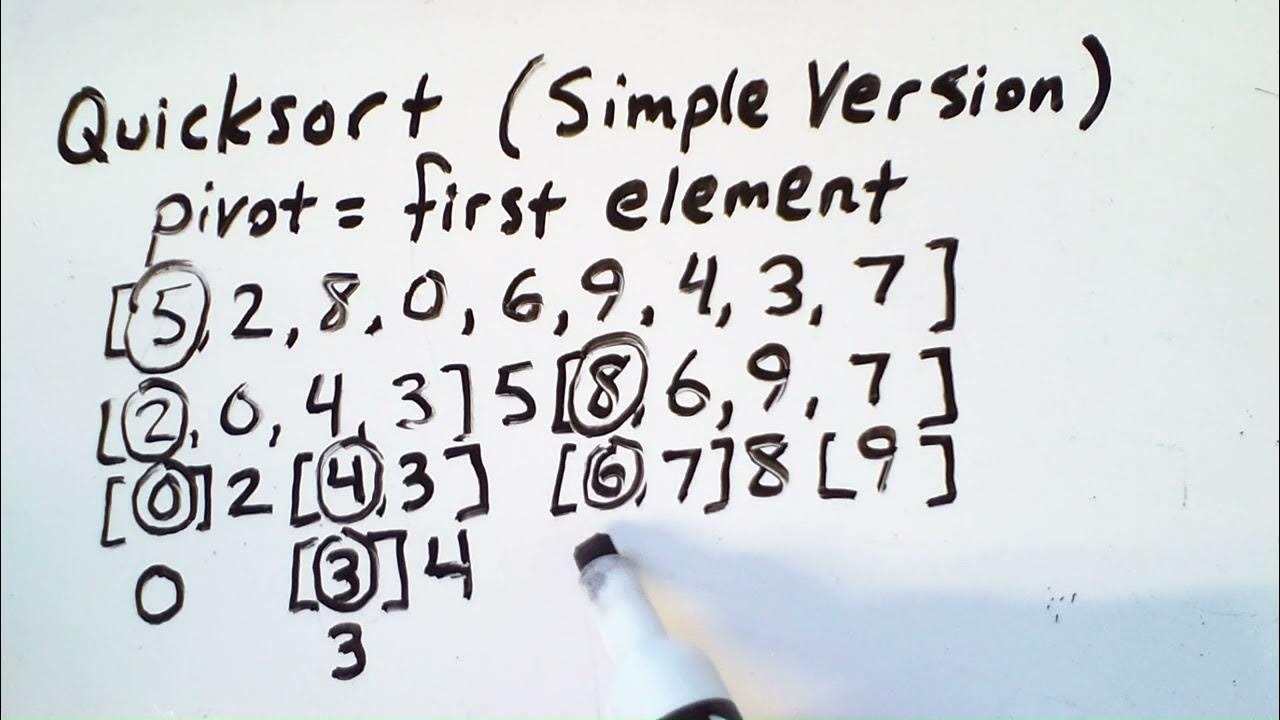 Quicksort (Simple Version)
pivot = first element
[5, 2, 8, 0, 6, 9, 4, 3, 7]
[2, 0, 4, 3] 5 [8, 6, 9, 7]
[0] 2 [4, 3] [6, 7] 8 [9]
0 [3] 4
3